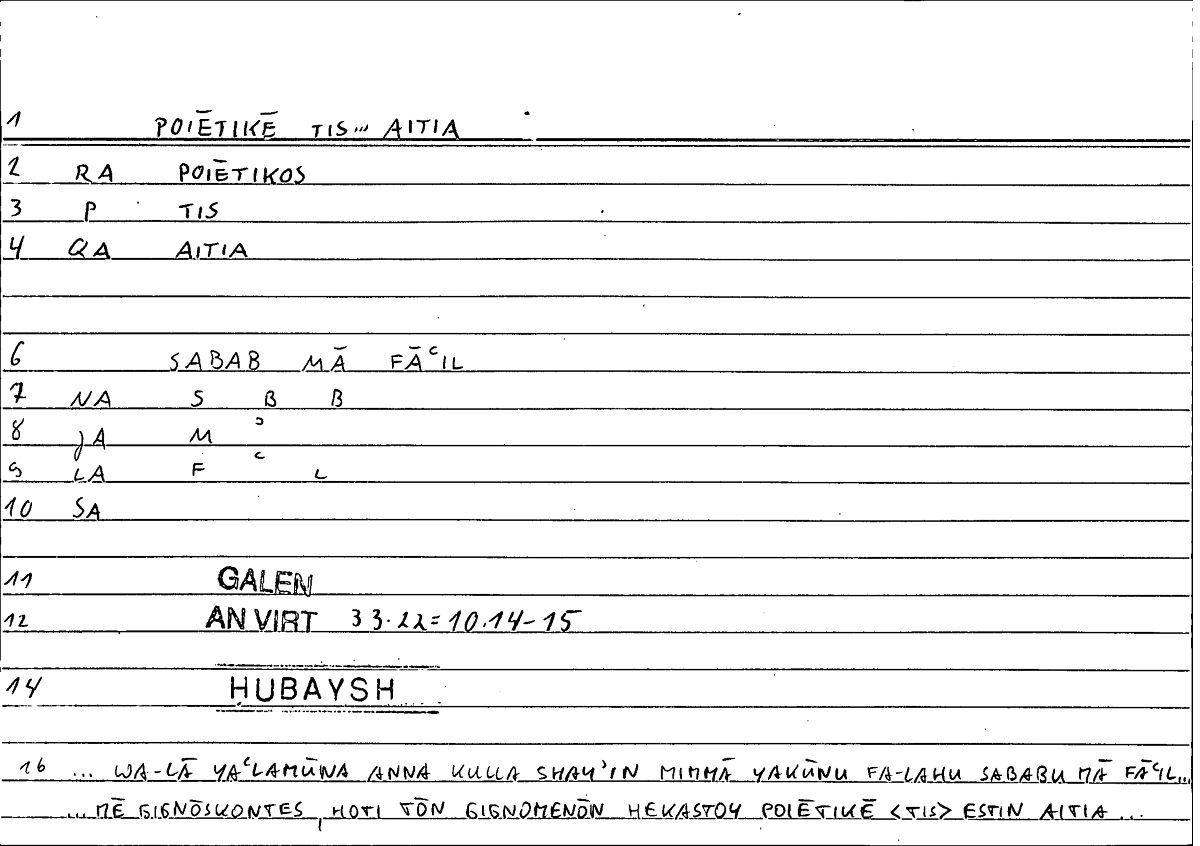 1 POIĒTIKĒ TIS... AITIA
2 RA POIĒTIKOS
3 P TIS
4 QA AITIA
6 SABAB MĀ FĀʿIL
7 NA S B B
8 JA M ʾ
9 LA F ʿ L
10 SA
11 GALEN
12 AN VIRT 33.22=10.14-15
14 ḤUBAYSH
16 ... WA-LĀ YAʿLAMŪNA ANNA KULLA SHAYʾIN MIMMĀ YAKŪNU FA-LAHU SABABU MĀ FĀʿIL...
... MĒ GIGNŌSKONTES, HOTI TŌN GIGNOMENŌN HEKASTOY POIĒTIKĒ <TIS> ESTIN AITIA ...